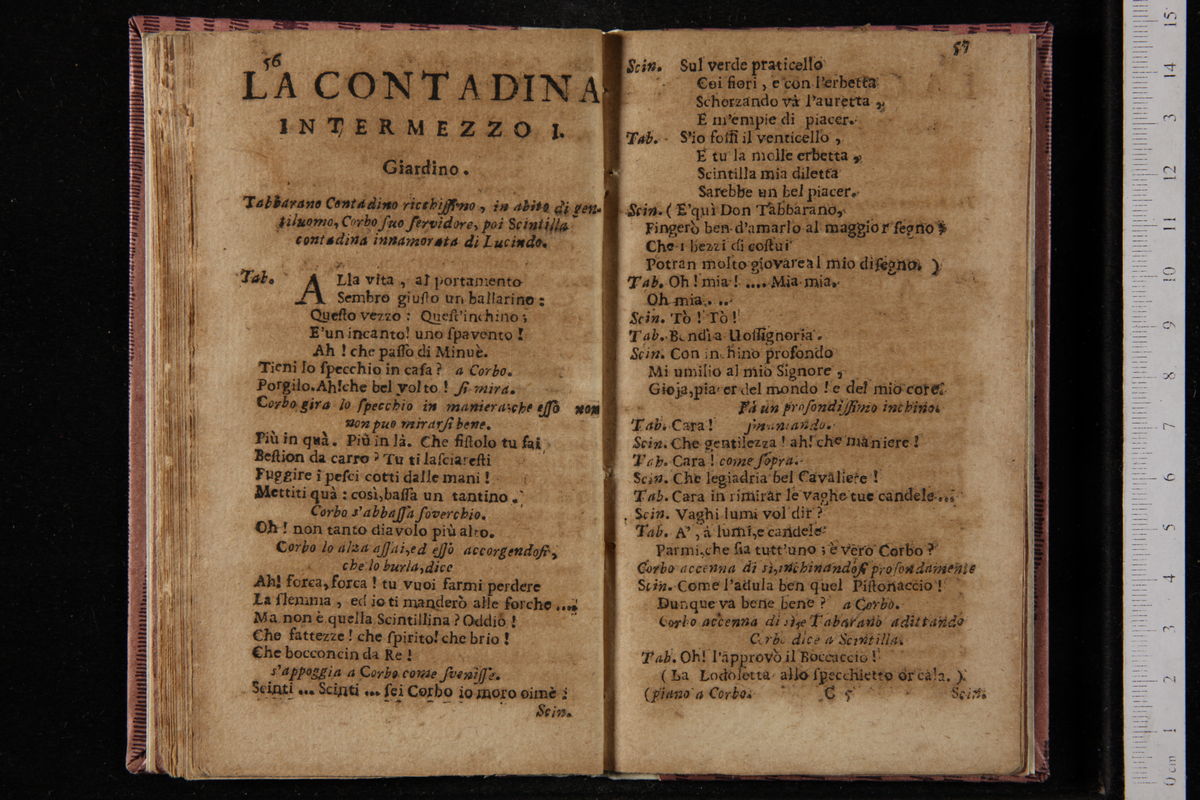 56
LA CONTADINA
INTERMEZZO I.
Giardino.
Tabbarano Contadino ricchissimo, in abito di gen-
tiluomo, Corbo suo servidore, poi Scintilla
contadina innamorata di Lucindo.
Tab. ALla vita, al portamento
Sembro giusto un ballarino:
Questo vezzo: Quest'inchino;
E'un incanto! uno spavento!
Ah! che passo di Minuè.
Tieni lo specchio in casa? a Corbo.
Porgilo. Ah!che bel volto! si mira.
Corbo gira lo specchio in maniera, che esso non
non può mirarsi bene.
Più in quà. Più in là. Che fistolo tu fai
Bestion da carro? Tu ti lasciaresti
Fuggire i pesci cotti dalle mani!
Mettiti quà: così, bassa un tantino.
Corbo s'abbassa soverchio.
Oh! non tanto diavolo più alto.
Corbo lo alza assai, ed esso accorgendosi,
che lo burla, dice
Ah! forca, forca! tu vuoi farmi perdere
La flemma, ed io ti manderò alle forche....
Ma non è quella Scintillina? Oddio!
Che fattezze! che spirito! che brio!
Che bocconcin da Re!
s'appoggia a Corbo come svenisse.
Scinti... Scinti... sei Corbo io moro oimè:
Scin.
57
Scin. Sul verde praticello
Coi fiori, e con l'erbetta
Scherzando và l'auretta,
E m'empie di piacer.
Tab. S'io fossi il venticello,
E tu la molle erbetta,
Scintilla mia diletta
Sarebbe un bel piacer.
Scin. (E'quì Don Tabbarano,
Fingerò ben d'amarlo al maggior segno
Che i bezzi di costui
Potran molto giovare al mio disegno. )
Tab. Oh! mia!.... Mia mia.
Oh mia. ..
Scin. Tò! Tò!
Tab. Bondìa Uossignoria.
Scin. Con inchino profondo
Mi umilio al mio Signore,
Gioja, piacer del mondo! e del mio core.
Fà un profondissimo inchino.
Tab. Cara! smaniando.
Scin. Che gentilezza! ah! che maniere!
Tab. Cara! come sopra.
Scin. Che legiadria bel Cavaliere!
Tab. Cara in rimirar le vaghe tue candele...
Scin. Vaghi lumi vol dir?
Tab. A', à lumi, e candele
Parmi, che sia tutt'uno; è vero Corbo?
Corbo accenna di sì, inchinandosi profondamente
Scin. Come l'adula ben quel Pistonaccio!
Dunque va bene bene? a Corbo.
Corbo accenna di sì, e Tabarano adittando
Corbo dice a Scintilla.
Tab. Oh! l'approvò il Boccaccio!
( La Lodoletta allo specchietto or cala. )
(piano a Corbo. C 5 Scin.